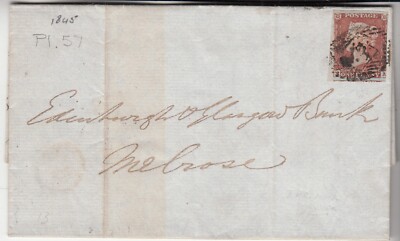 1845
Pl. 57
POSTAGE
Edinburgh & Glasgow Bank
Melrose